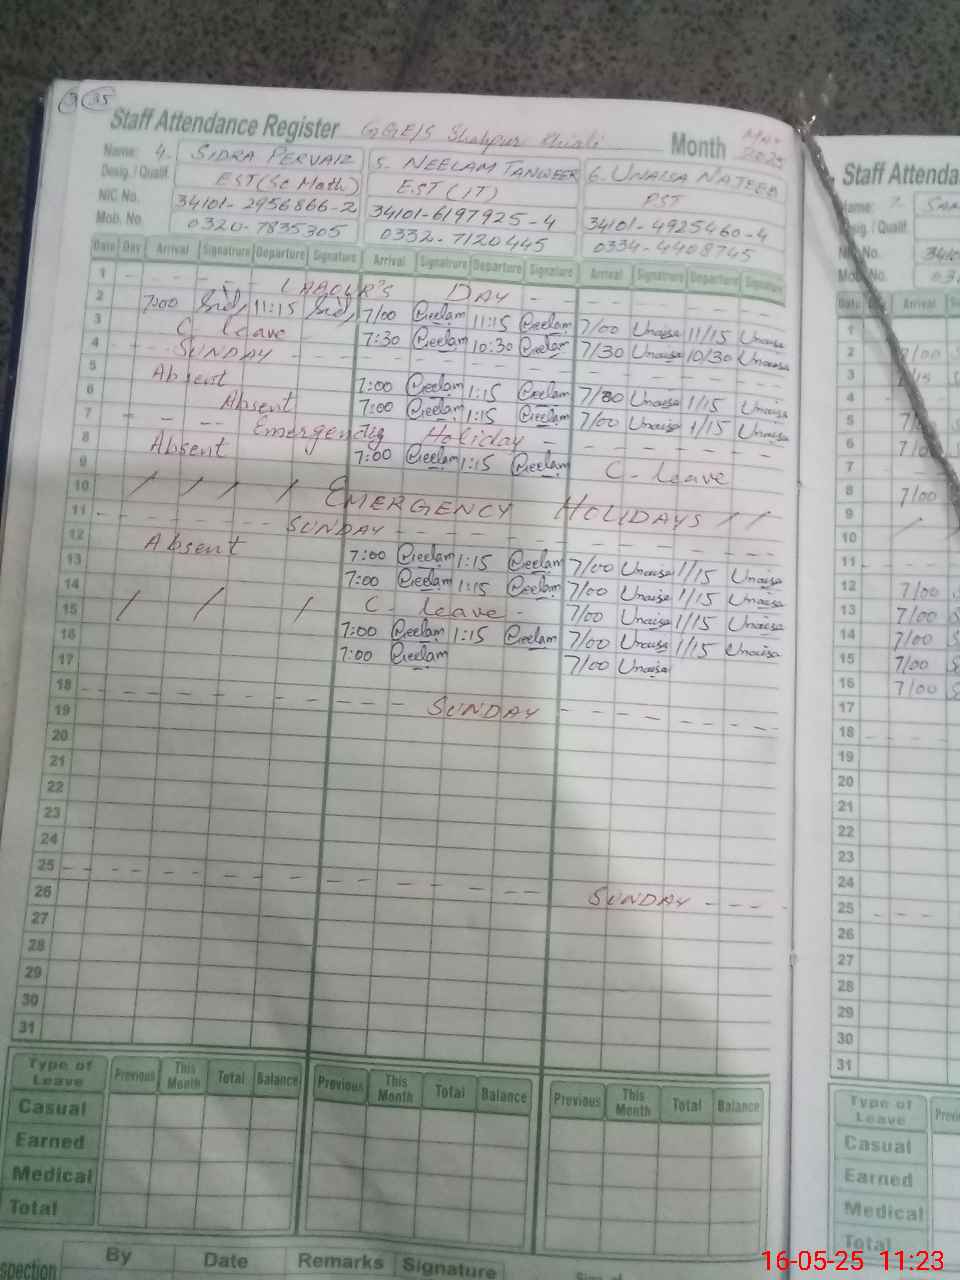 35
Staff Attendance Register GGE/S Shahpur Khiali Month May 2025
Name: 4. SIDRA PERVAIZ 5. NEELAM TANWEER 6. UNAISA NAJEEB
Desig. / Qualif. EST (Sc Math) EST (IT) PST
NIC No. 34101-2956866-2 34101-6197925-4 34101-4925460-4
Mob. No. 0320-7835305 0332-7120445 0334-4408745
Date Day Arrival Signature Departure Signature Arrival Signature Departure Signature Arrival Signature Departure Signature
1 LABOUR'S DAY
2 7:00 Sid 11:15 Sid 7/00 Neelam 11:15 Neelam 7/00 Unaisa 11/15 Unaisa
3 C leave 7:30 Neelam 10:30 Neelam 7/30 Unaisa 10/30 Unaisa
4 SUNDAY
5 Absent 7:00 Neelam 1:15 Neelam 7/00 Unaisa 1/15 Unaisa
6 Absent 7:00 Neelam 1:15 Neelam 7/00 Unaisa 1/15 Unaisa
7 Emergency Holiday
8 Absent 7:00 Neelam 1:15 Neelam C- leave
9
10 EMERGENCY HOLIDAYS
11 SUNDAY
12 Absent 7:00 Neelam 1:15 Neelam 7/00 Unaisa 1/15 Unaisa
13 7:00 Neelam 1:15 Neelam 7/00 Unaisa 1/15 Unaisa
14 C- leave 7/00 Unaisa 1/15 Unaisa
15 7:00 Neelam 1:15 Neelam 7/00 Unaisa 1/15 Unaisa
16 7:00 Neelam 7/00 Unaisa
17
18 SUNDAY
19
20
21
22
23
24
25 SUNDAY
26
27
28
29
30
31
Type of Leave Previous This Month Total Balance Previous This Month Total Balance Previous This Month Total Balance
Casual
Earned
Medical
Total
spection By Date Remarks Signature
Staff Attenda
Name: 7.
Desig. / Qualif.
NIC No. 3410
Mob. No.
Date Arrival
1
2 7/00
3 7/15
4
5 7/
6 7/0
7
8 7/00
9
10
11
12 7/00
13 7/00
14 7/00
15 7/00
16 7/00
17
18
19
20
21
22
23
24
25
26
27
28
29
30
31
Type of Leave
Casual
Earned
Medical
Total
16-05-25 11:23